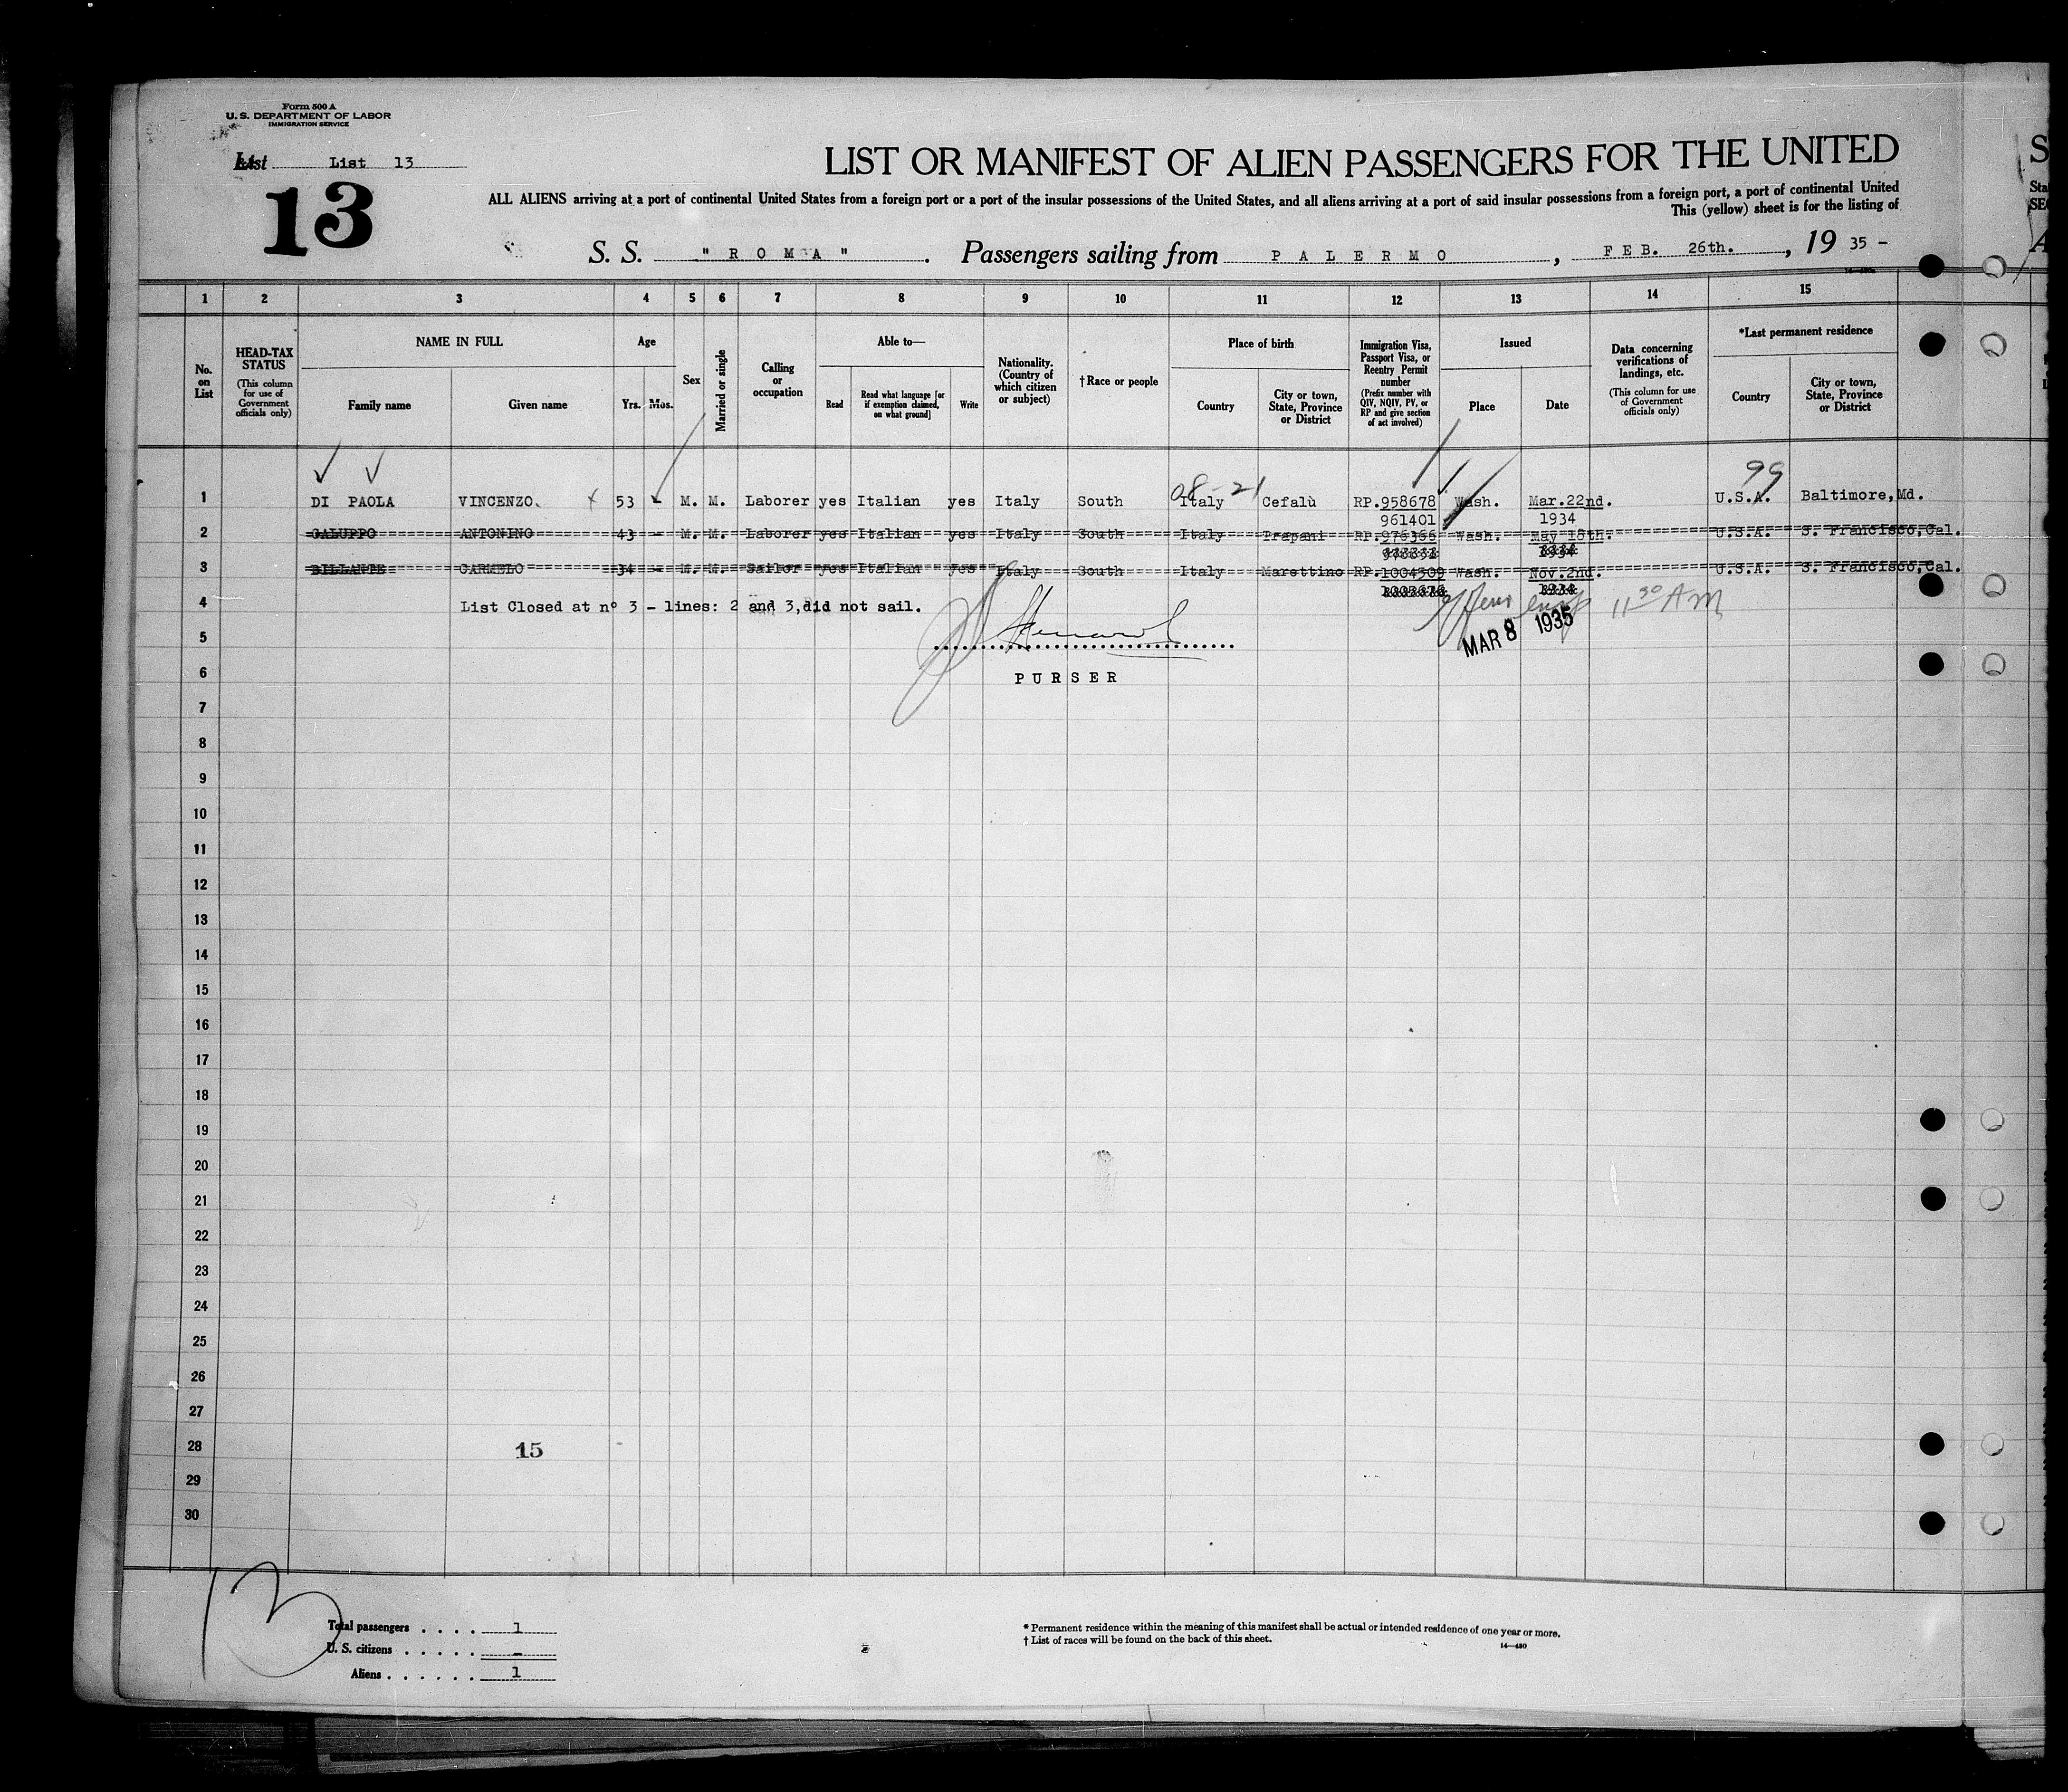 Form 500 A
U. S. DEPARTMENT OF LABOR
IMMIGRATION SERVICE
List List 13
13
LIST OR MANIFEST OF ALIEN PASSENGERS FOR THE UNITED
ALL ALIENS arriving at a port of continental United States from a foreign port or a port of the insular possessions of the United States, and all aliens arriving at a port of said insular possessions from a foreign port, a port of continental United
This (yellow) sheet is for the listing of
S. S. " R O M A " . Passengers sailing from P A L E R M O , FEB. 26th. , 19 35 -
1 2 3 4 5 6 7 8 9 10 11 12 13 14 15
No. on List
HEAD-TAX STATUS
(This column for use of Government officials only)
NAME IN FULL
Family name Given name
Age
Yrs. Mos.
Sex
Married or single
Calling or occupation
Able to—
Read
Read what language [or if exemption claimed, on what ground]
Write
Nationality. (Country of which citizen or subject)
†Race or people
Place of birth
Country
City or town, State, Province or District
Immigration Visa, Passport Visa, or Reentry Permit number
(Prefix number with QIV, NQIV, PV, or RP and give section of act involved)
Issued
Place Date
Data concerning verifications of landings, etc.
(This column for use of Government officials only)
*Last permanent residence
Country
City or town, State, Province or District
08-21 99
1 DI PAOLA VINCENZO. 53 - M. M. Laborer yes Italian yes Italy South Italy Cefalù RP.958678 Wash. Mar.22nd. U.S.A. Baltimore,Md.
961401 1934
2 GALUPPO ANTONINO 43 - M. M. Laborer yes Italian yes Italy South Italy Trapani RP.976366 Wash. May 18th. U.S.A. S. Francisco,Cal.
3 BILLANTE CARMELO 34 - M. M. Sailor yes Italian yes Italy South Italy Marettino RP.1004509 Wash. Nov.2nd. U.S.A. S. Francisco,Cal.
4 List Closed at nº 3 - lines: 2 and 3,did not sail.
11 30 AM
MAR 8 1935
5
6 PURSER
7
8
9
10
11
12
13
14
15
16
17
18
19
20
21
22
23
24
25
26
27
28 15
29
30
13
Total passengers . . . . 1
U. S. citizens . . . . . -
Aliens . . . . . . 1
* Permanent residence within the meaning of this manifest shall be actual or intended residence of one year or more.
† List of races will be found on the back of this sheet.
14—480